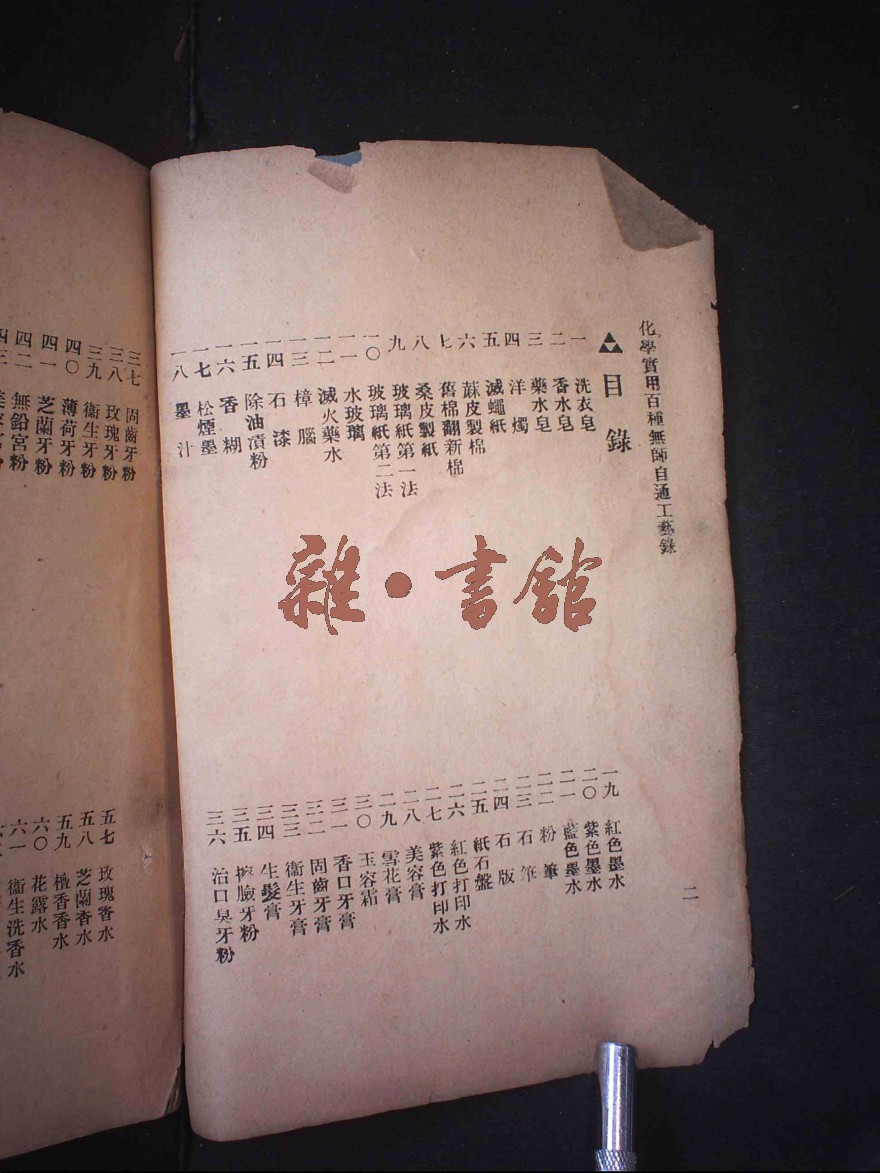 化學實用百種無師自通工藝錄
目錄
一 洗衣皂
二 香水皂
三 藥水皂
四 洋燭
五 滅蠅紙
六 蔴皮製棉
七 舊棉翻新棉
八 桑皮製紙
九 玻璃紙第一法
一〇 玻璃紙第二法
一一 水玻璃
一二 滅火藥水
一三 樟腦
一四 石漆
一五 除油漬粉
一六 香糊
一七 松煙墨
一八 墨汁
一九 紅色墨水
二〇 紫色墨水
二一 藍色墨水
二二 粉筆
二三 石筆
二四 石版
二五 紙石盤
二六 紅色打印水
二七 紫色打印水
二八 美容膏
二九 雪花膏
三〇 玉容霜
三一 香口牙膏
三二 固齒牙膏
三三 衞生牙膏
三四 生髮膏
三五 擦臉牙粉
三六 治口臭牙粉
二
三七 固齒牙粉
三八 玫瑰牙粉
三九 衞生牙粉
四〇 薄荷牙粉
四一 芝蘭牙粉
四二 無鉛宮粉
五七 玫瑰香水
五八 芝蘭香水
五九 檀香香水
六〇 花露水
六一 衞生洗香水
雜·書館